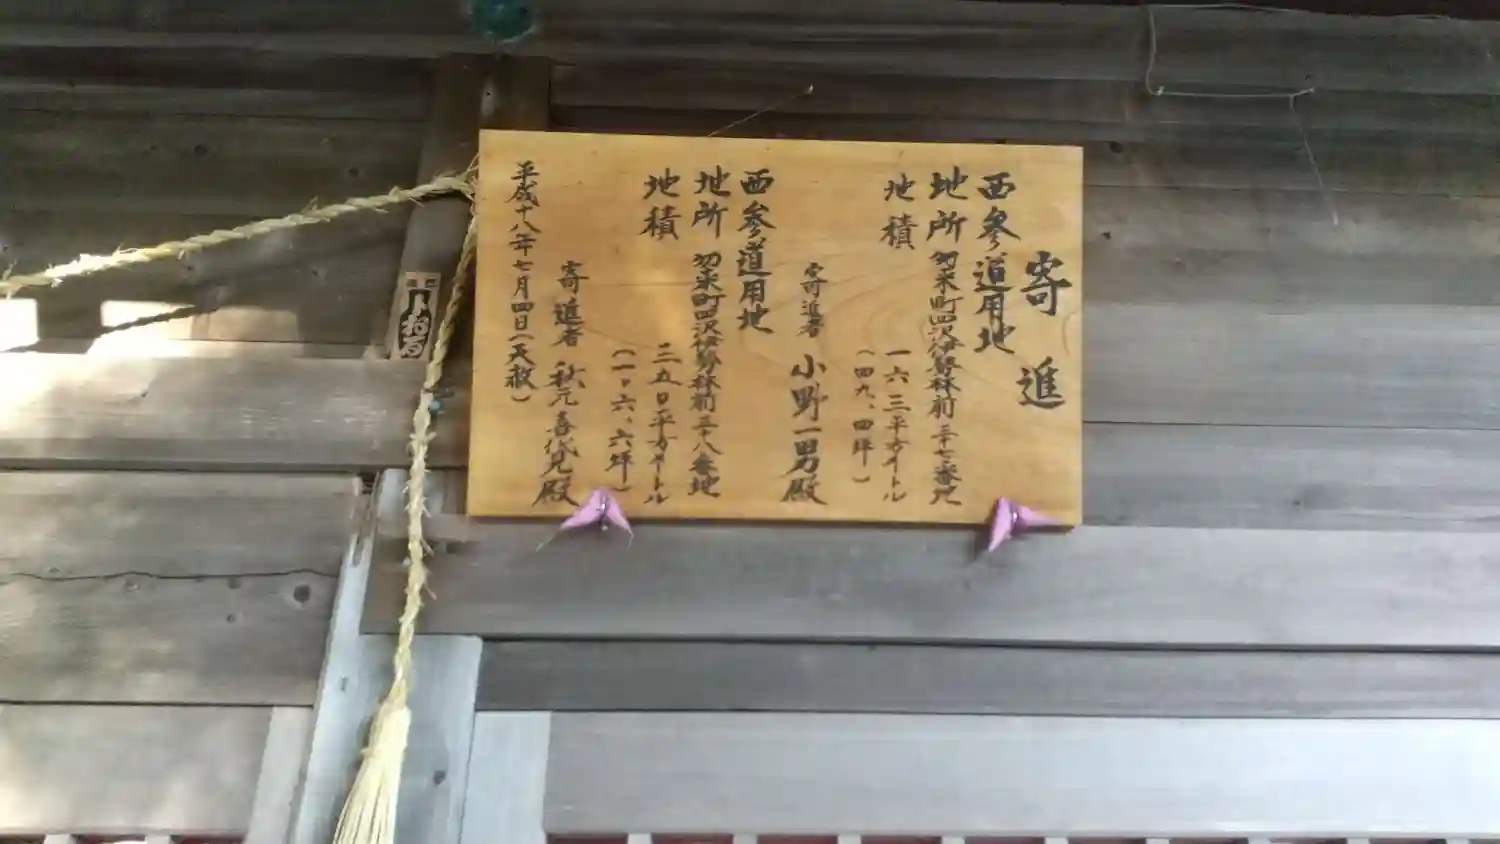 寄進
西参道用地
地所 勿来町四沢伊勢林前三十七番地
地積 一六三平方メートル
(四九、四坪)
寄進者 小野一男殿
西参道用地
地所 勿来町四沢伊勢林前三十八番地
地積 三五〇平方メートル
(一〇六、六坪)
寄進者 秋元喜代見殿
平成十八年七月四日(天赦)